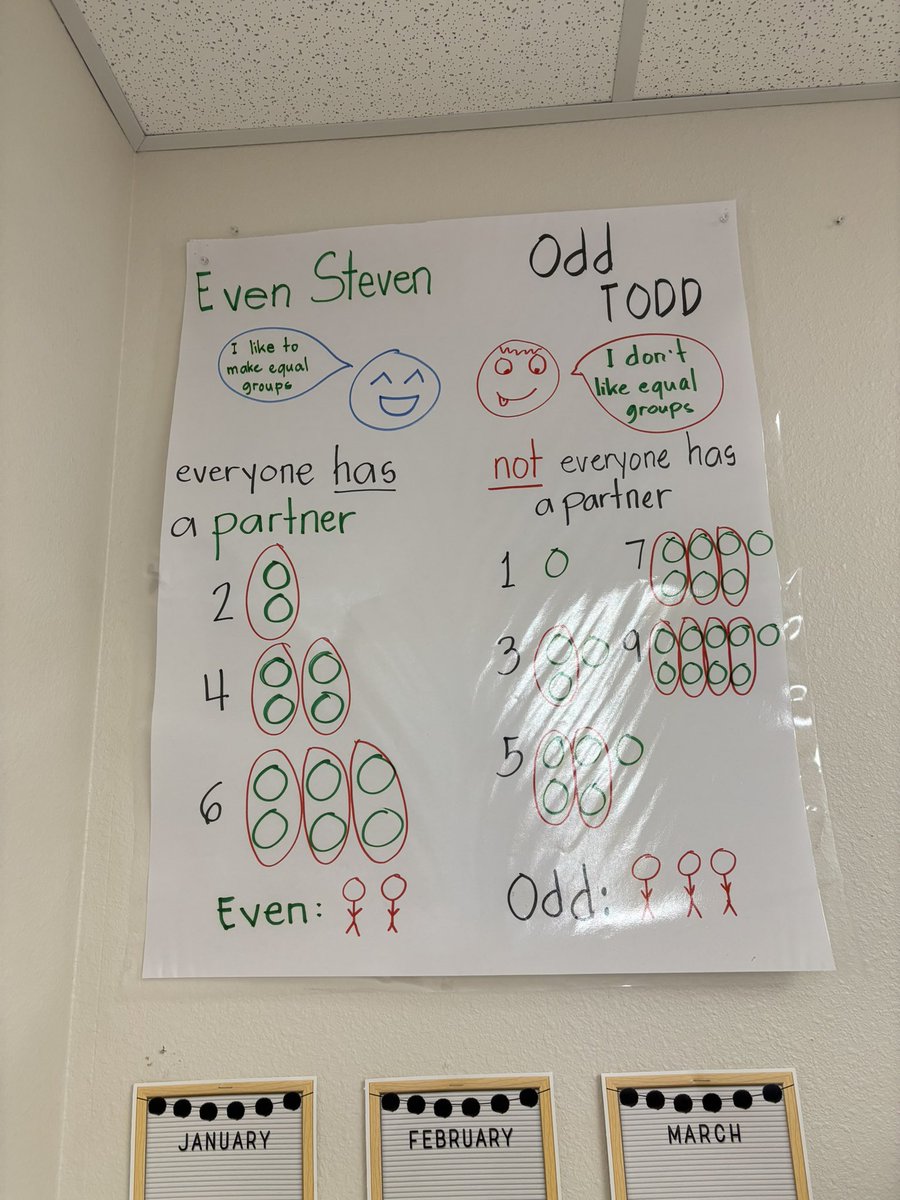 Even Steven
I like to
make equal
groups
everyone has
a partner
2
4
6
Even:
Odd
TODD
I don't
like equal
groups
not everyone has
a partner
1
7
3
9
5
Odd:
JANUARY
FEBRUARY
MARCH